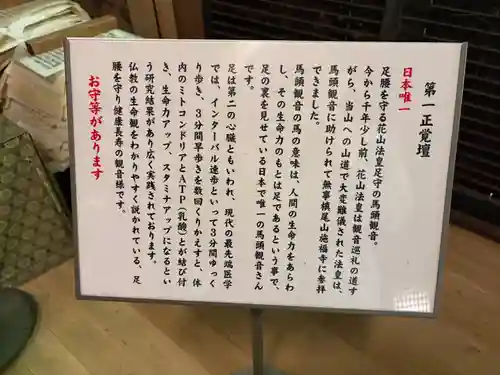 第一正覚壇
日本唯一
足腰を守る花山法皇足守の馬頭観音。
今から千年少し前、花山法皇は観音巡礼の道す
がら、当山への山道で大変難儀された法皇は、
馬頭観音に助けられて無事槙尾山施福寺に参拝
できました。
馬頭観音の馬の意味は、人間の生命力をあらわ
し、その生命力のもとは足であるという事で、
足の裏を見せている日本で唯一の馬頭観音さん
です。
足は第二の心臓ともいわれ、現代の最先端医学
では、インターバル速歩といって3分間ゆっく
り歩き、3分間早歩きを数回くりかえすと、体
内のミトコンドリアとATP(乳酸)とが結び付
き、生命力アップ、スタミナアップになるとい
う研究結果があり広く実践されております。
仏教の生命観をわかりやすく説かれている、足
腰を守り健康長寿の観音様です。
お守等があります